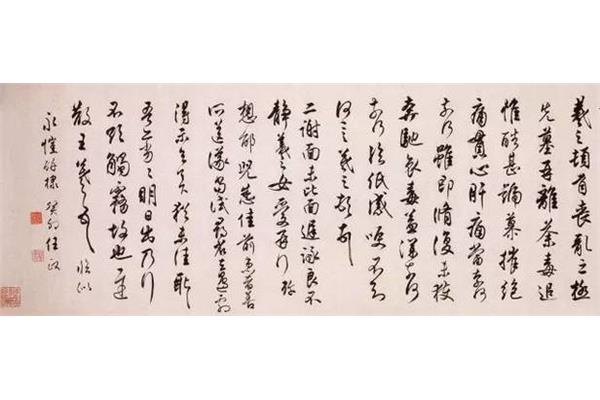 羲之頓首喪亂之極
先墓再離荼毒追
惟酷甚號慕摧絕
痛貫心肝痛當奈何
奈何雖即脩復未獲
奔馳哀毒益深奈何
奈何臨紙感哽不知
何言羲之頓首頓首
二謝面未比面遲詠良不
靜羲之女愛再拜 珍
想邰兒悉佳前患者善
所送議當試尋省左邊劇
得示知足下猶未佳耿耿
吾亦劣劣明日出乃行
不欲觸霧故也遲
散王羲之頓首 臨似
永愷 任政